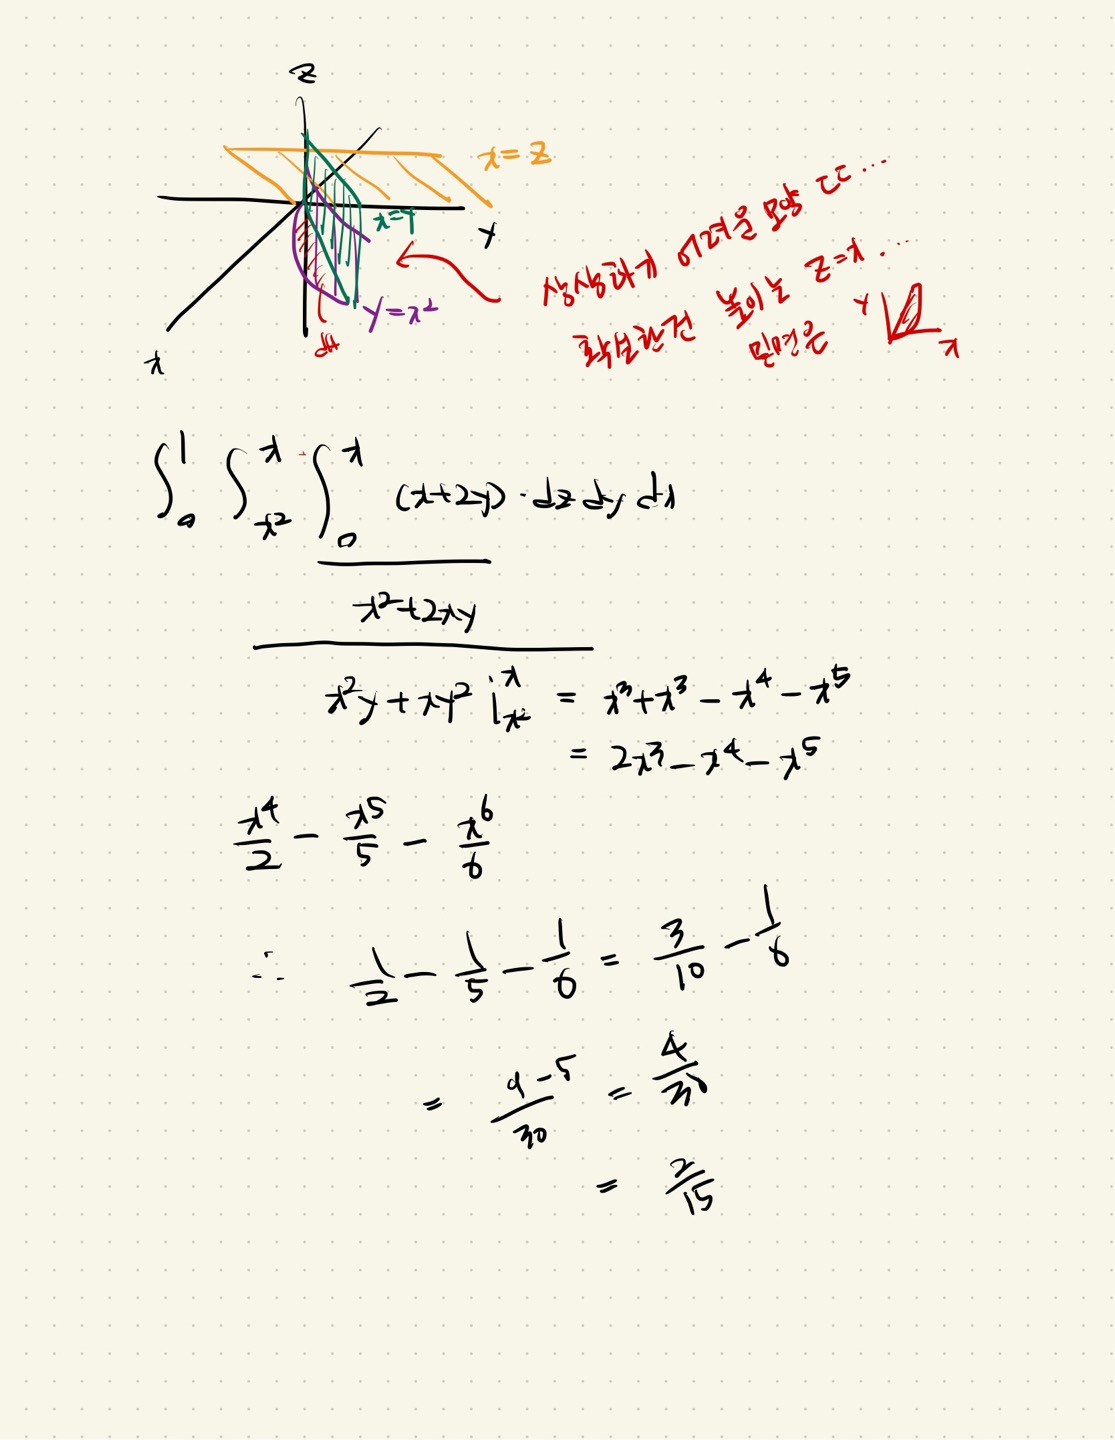 z
x = z
x=y
y
y = x²
dA
x
상상하기 어려운 모양 ㄷㄷ...
확실한건 높이는 z=x...
밑면은 y x
∫₀¹ ∫ₓ²ˣ ∫₀ˣ (x+2y)·dz dy dx
x²+2xy
x²y + xy² |ₓ²ˣ = x³+x³ - x⁴ - x⁵
= 2x³ - x⁴ - x⁵
x⁴/2 - x⁵/5 - x⁶/6
∴ 1/2 - 1/5 - 1/6 = 3/10 - 1/6
= (9-5)/30 = 4/30
= 2/15